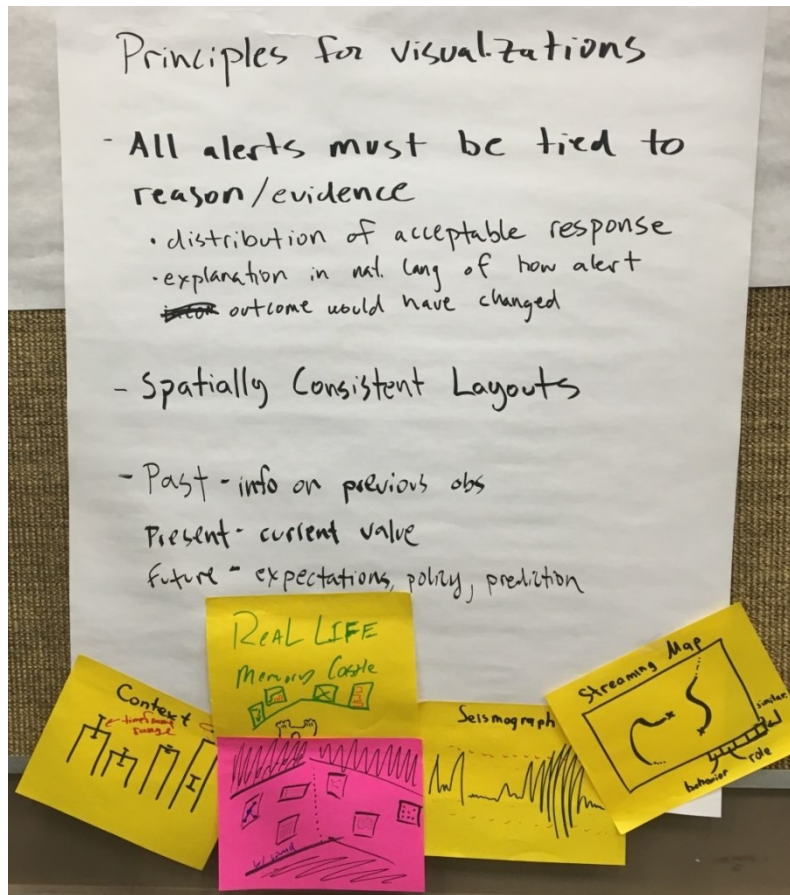 Principles for visualizations
- All alerts must be tied to
reason/evidence
· distribution of acceptable response
· explanation in nat. lang of how alert
outcome would have changed
- Spatially Consistent Layouts
- Past - info on previous obs
Present - current value
Future - expectations, policy, prediction
ReaL LIFE
Memory Castle
Context
range
Seismograph
Streaming Map
similar
role
behavior